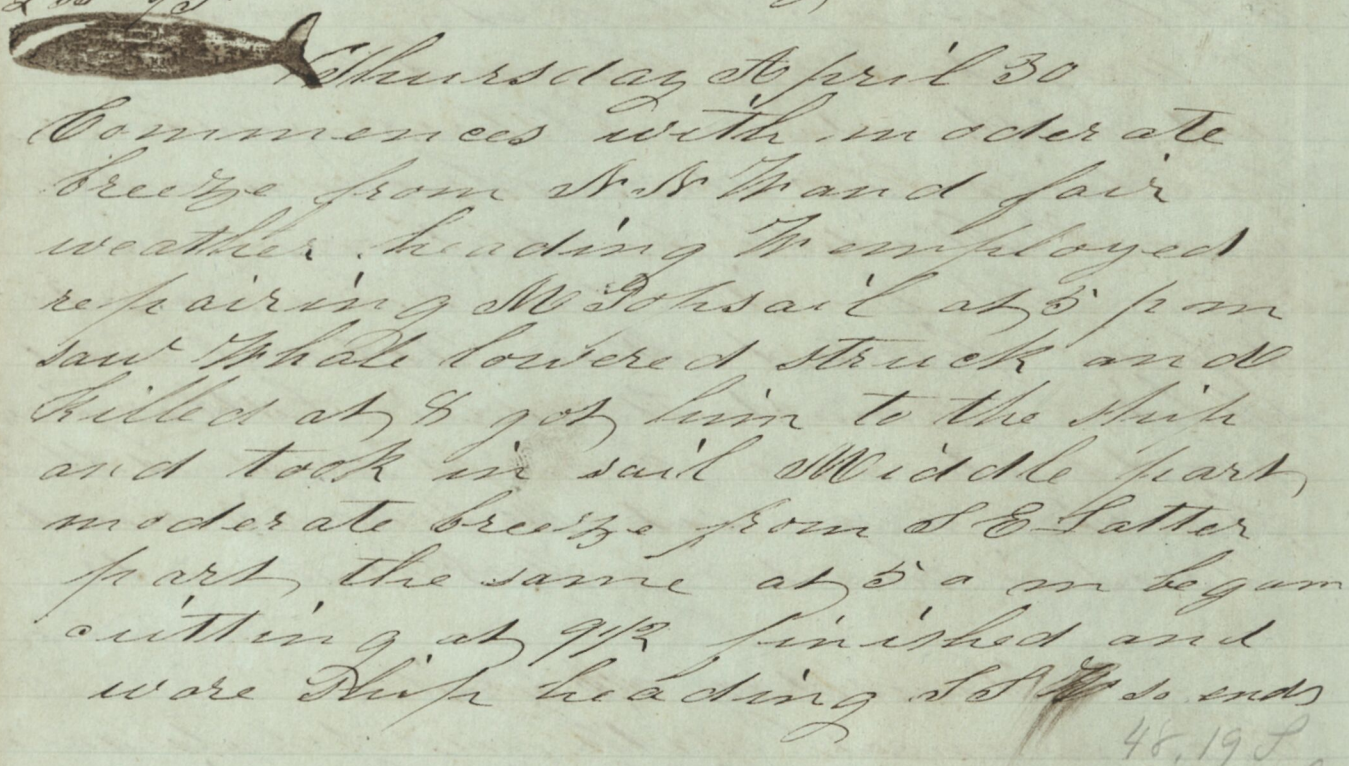 Thursday April 30
Commences with moderate
breeze from N N W and fair
weather heading W employed
repairing M Topsail at 5 p m
saw Whale lowered struck and
Killed at 8 got him to the ship
and took in sail Middle part
moderate breeze from S E Latter
part the same at 5 a m began
cutting at 9 1/2 finished and
wore Ship heading S S so ends
48,19 S